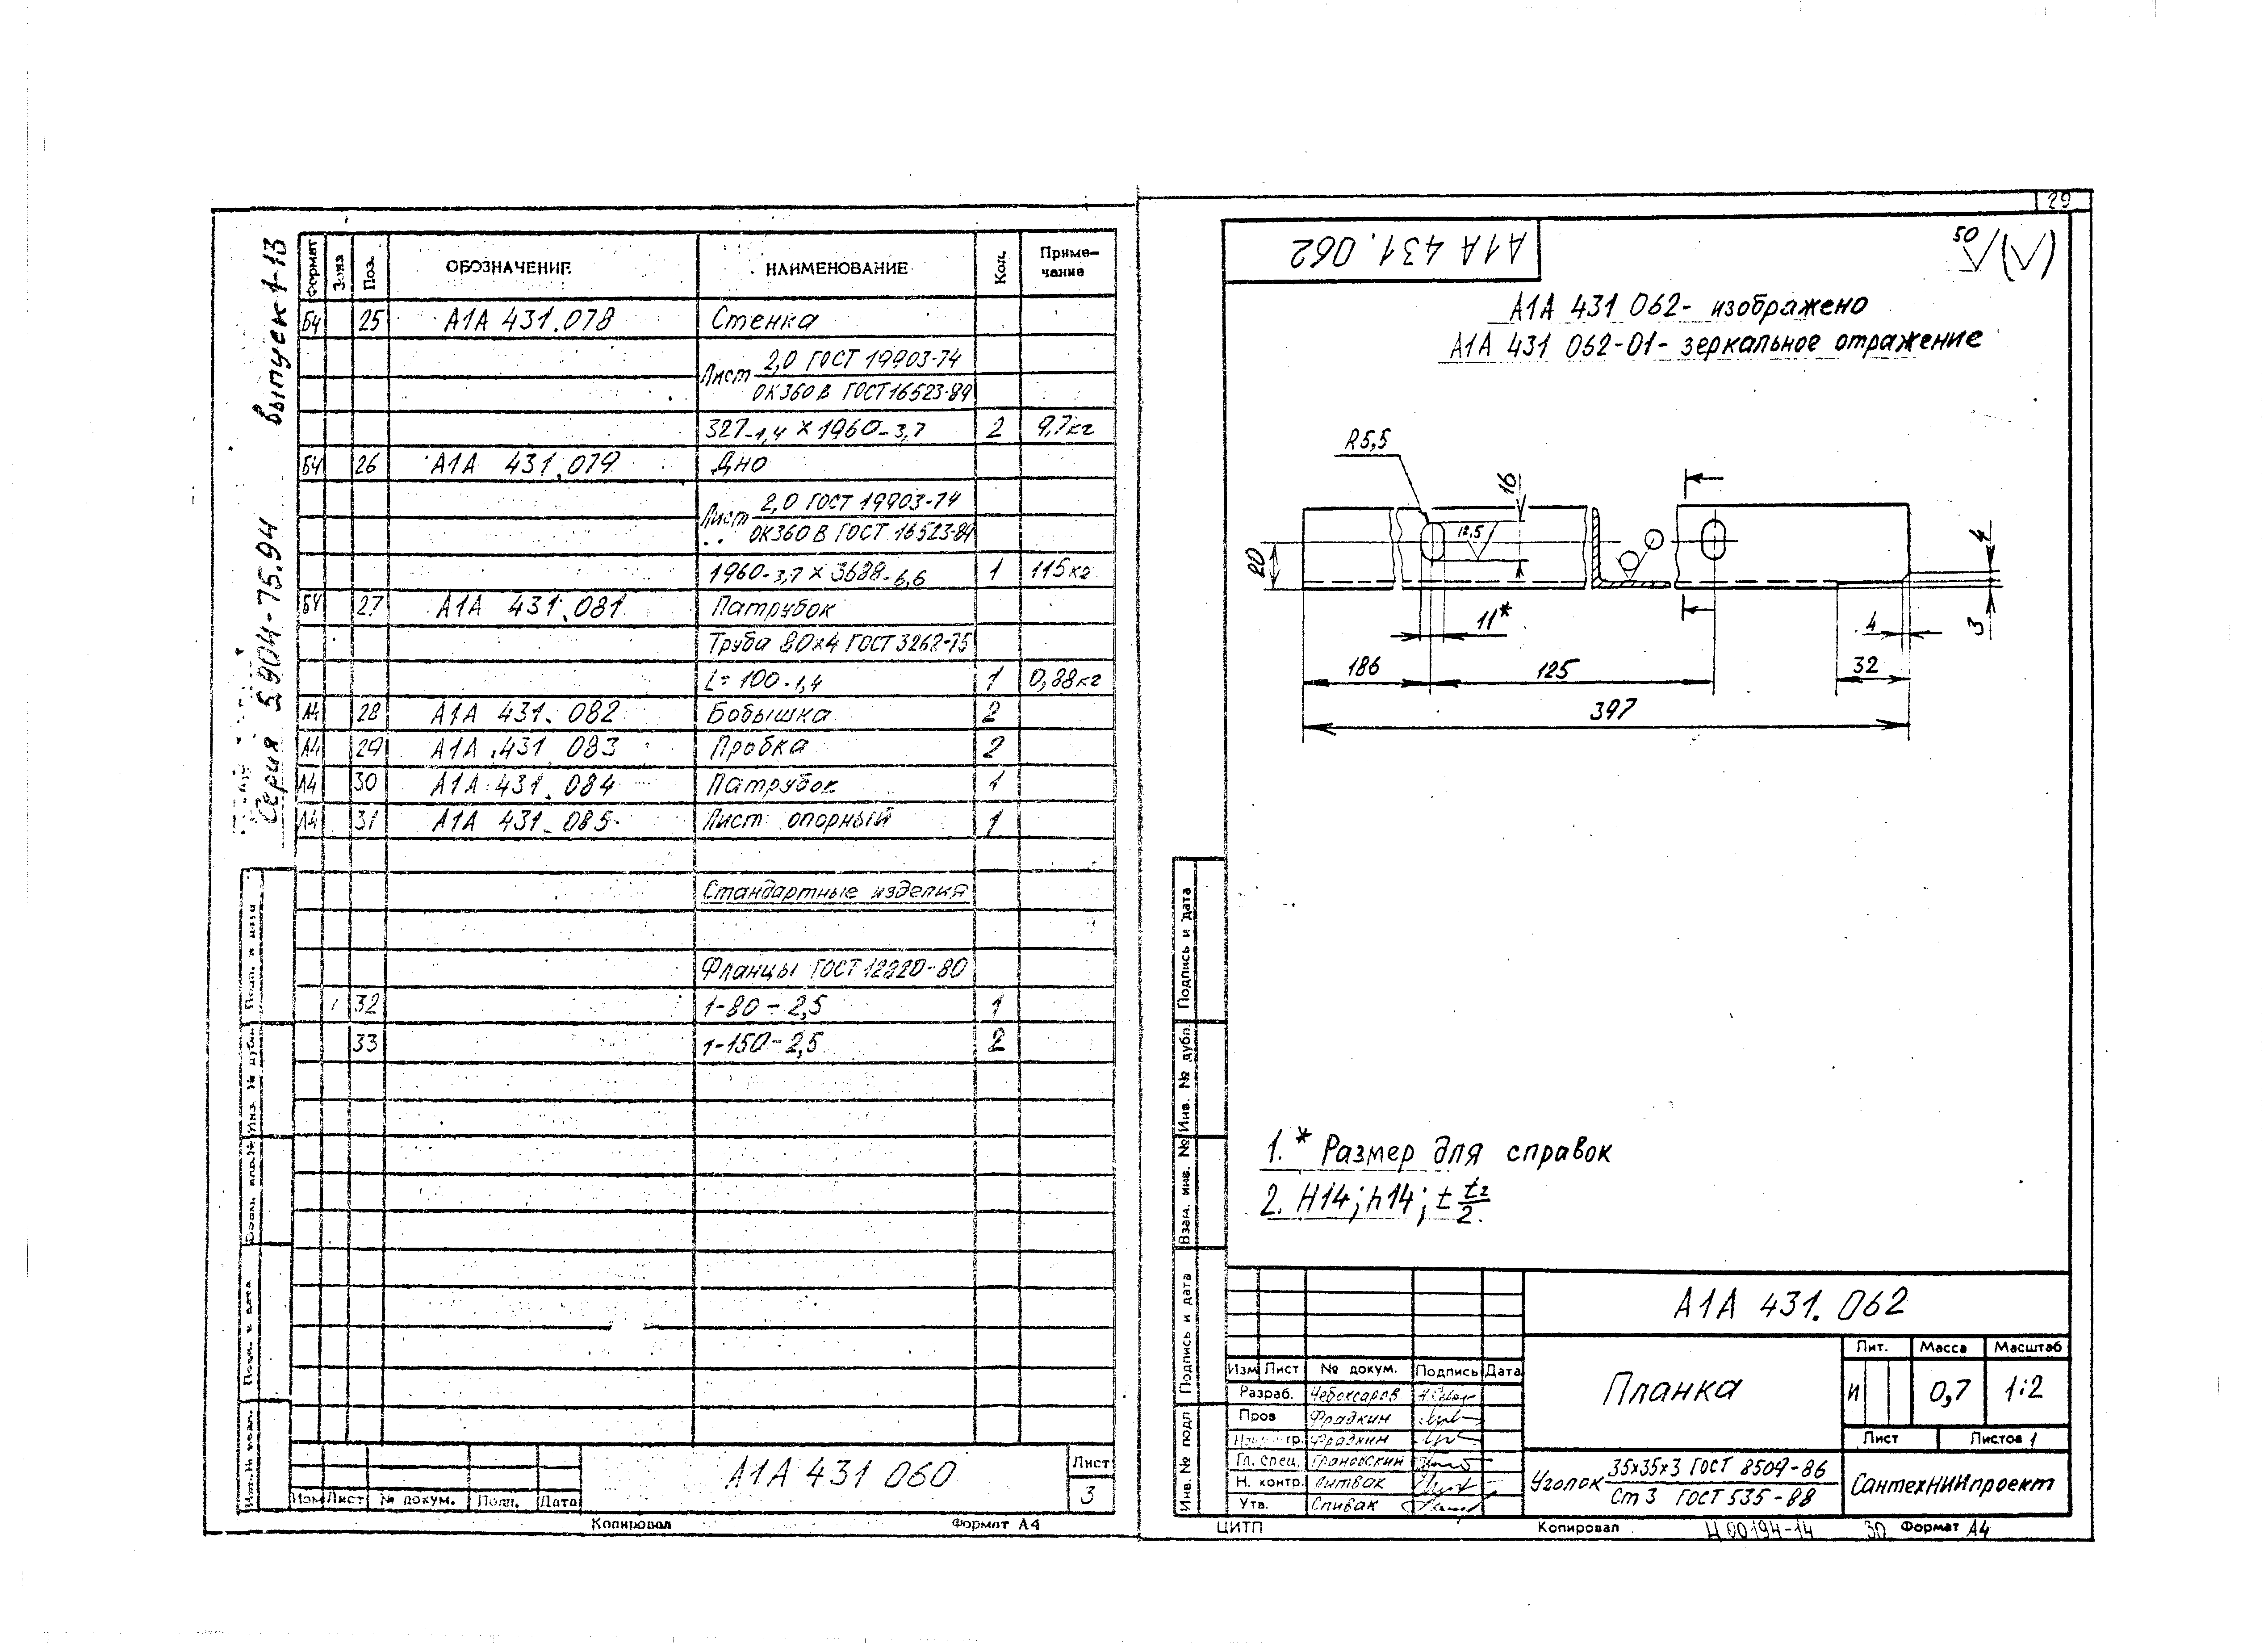 Серия 5.904-75.94 выпуск 1-13
Формат Зона Поз. ОБОЗНАЧЕНИЕ НАИМЕНОВАНИЕ Кол. Приме-
чание
БЧ 25 А1А 431.078 Стенка
Лист 2,0 ГОСТ 19903-74
ОК360В ГОСТ 16523-89
327-1,4 × 1960-3,7 2 9,7кг
БЧ 26 А1А 431.079 Дно
Лист 2,0 ГОСТ 19903-74
ОК360В ГОСТ 16523-89
1960-3,7 × 3688-6,6 1 115кг
БЧ 27 А1А 431.081 Патрубок
Труба 80×4 ГОСТ 3262-75
L=100-1,4 1 0,88кг
А4 28 А1А 431.082 Бобышка 2
А4 29 А1А 431 083 Пробка 2
А4 30 А1А 431.084 Патрубок 1
А4 31 А1А 431.085 Лист опорный 1
Стандартные изделия
Фланцы ГОСТ 12820-80
32 1-80-2,5 1
33 1-150-2,5 2
Изм Лист № докум. Подп. Дата
А1А 431 060
Лист
3
Копировал Формат А4
29
А1А 431.062
50 √(√)
А1А 431 062- изображено
А1А 431 062-01- зеркальное отражение
R5,5
16
12,5
20
11*
4
4
3
186 125 32
397
1.* Размер для справок
2. H14; h14; ± t2/2.
Подпись и дата
Инв. № дубл.
Взам. инв. №
Подпись и дата
Инв. № подл
А1А 431.062
Изм Лист № докум. Подпись Дата
Разраб. Чебоксаров
Пров Фрадкин
Фрадкин
Гл. спец. Грановский
Н. контр. Литвак
Утв. Спивак
Планка
Лит. Масса Масштаб
И 0,7 1:2
Лист Листов 1
Уголок 35×35×3 ГОСТ 8509-86
Ст 3 ГОСТ 535-88
СантехНИИпроект
ЦИТП Копировал Ц00194-14 30 Формат А4